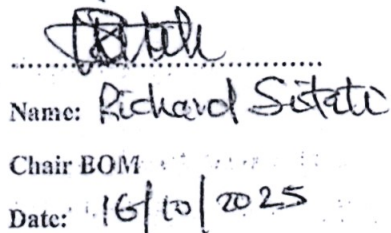 Name: Richard Sitati
Chair BOM
Date: 16/10/2025